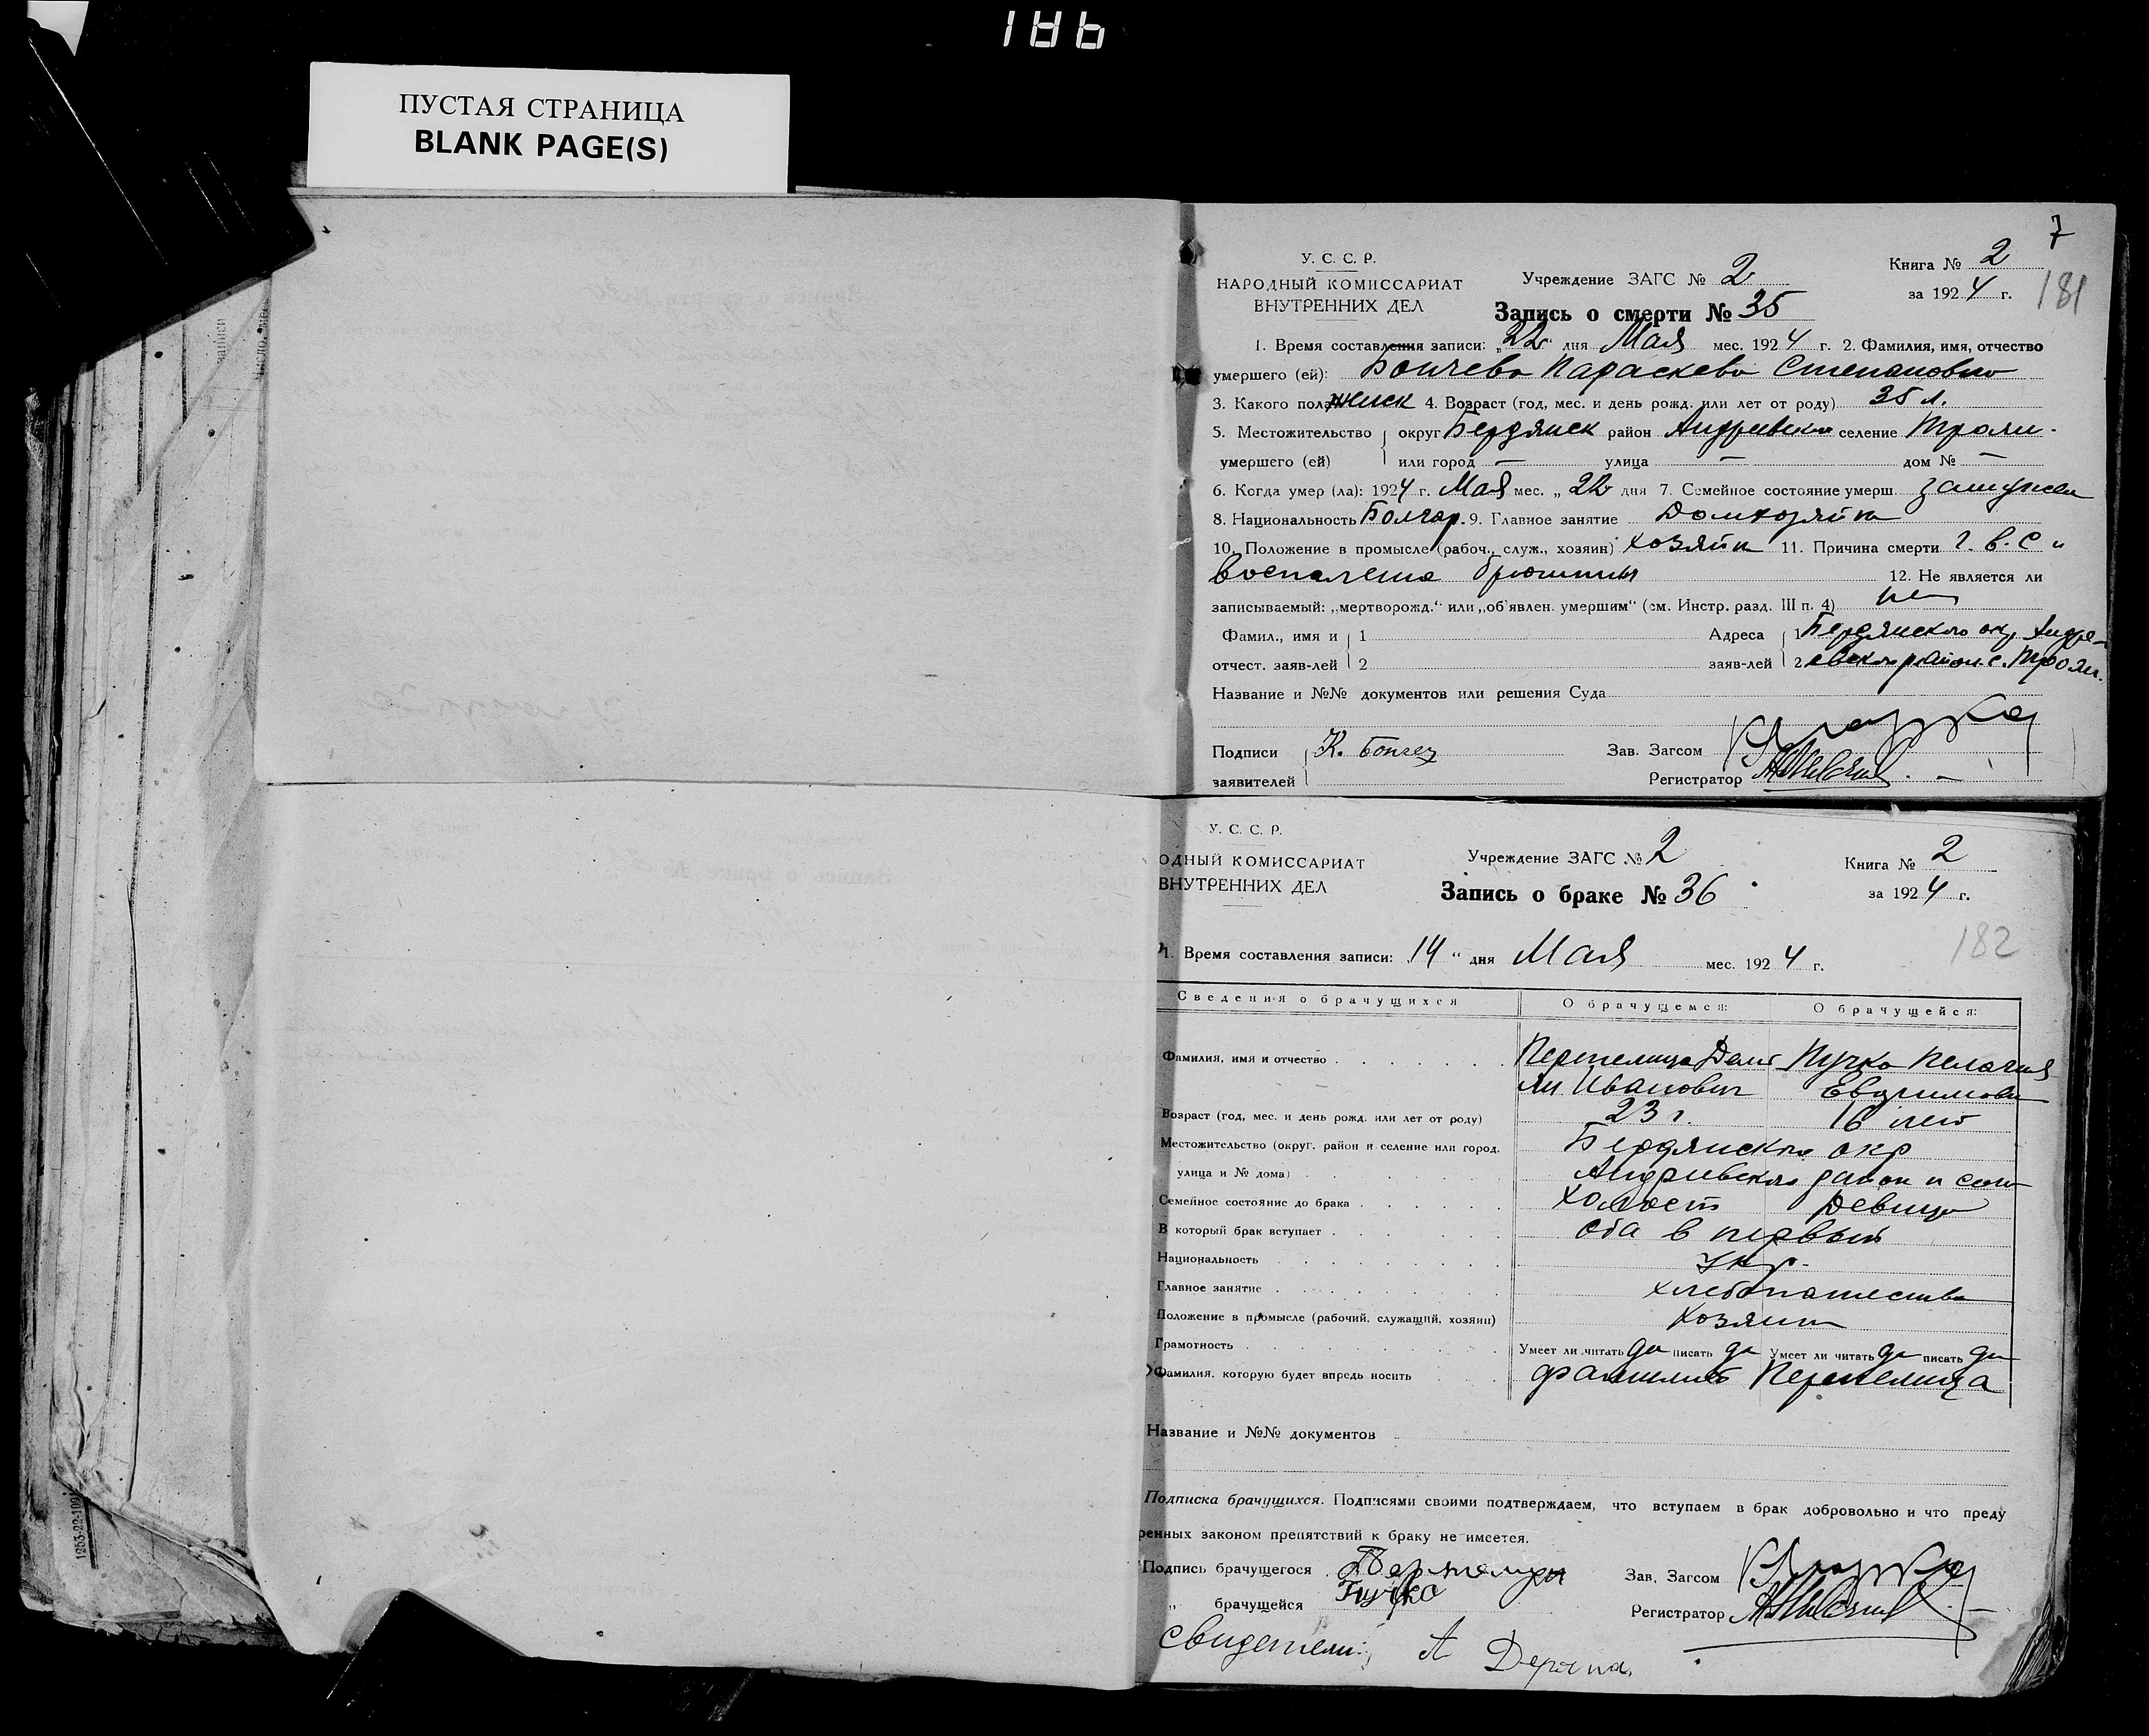 186
ПУСТАЯ СТРАНИЦА
BLANK PAGE(S)
7
У. С. С. Р.
НАРОДНЫЙ КОМИССАРИАТ
ВНУТРЕННИХ ДЕЛ
Учреждение ЗАГС № 2
Книга № 2
за 1924 г.
181
Запись о смерти № 35
1. Время составления записи: „22" дня Мая мес. 1924 г. 2. Фамилия, имя, отчество
умершего (ей): Бончева Параскева Степановна
3. Какого пола женск 4. Возраст (год, мес. и день рожд. или лет от роду) 35 л.
5. Местожительство округ Бердянск район Андреевский селение Троян.
умершего (ей) или город — улица — дом № —
6. Когда умер (ла): 1924 г. Мая мес. „22 дня 7. Семейное состояние умерш. замужем
8. Национальность Болгар. 9. Главное занятие Домхозяйка
10. Положение в промысле (рабоч., служ., хозяин) хозяйка 11. Причина смерти
воспаление брюшины 12. Не является ли
записываемый: „мертворожд." или „об'явлен. умершим" (см. Инстр. разд. III п. 4) нет
Фамил., имя и 1 Адреса 1 Бердянского окр Андре-
отчест. заяв-лей 2 заяв-лей 2 евского район. с. Троян.
Название и №№ документов или решения Суда
Подписи К. Бончев Зав. Загсом
заявителей Регистратор
У. С. С. Р.
ОДНЫЙ КОМИССАРИАТ
ВНУТРЕННИХ ДЕЛ
Учреждение ЗАГС № 2
Книга № 2
за 1924 г.
Запись о браке № 36
182
1. Время составления записи: 14 " дня Мая мес. 1924 г.
Сведения о брачущихся О брачущемся: О брачущейся:
Фамилия, имя и отчество Перепелица Демь Пучка Пелагия
ян Иванович Евдокимовн
Возраст (год, мес. и день рожд. или лет от роду) 23 г. 16 лет
Местожительство (округ, район и селение или город, Бердянского окр
улица и № дома) Андреевского район и села
Семейное состояние до брака холост девица
В который брак вступает оба в первый
Национальность Укр.
Главное занятие хлебопашество
Положение в промысле (рабочий, служащий, хозяин) хозяин
Грамотность Умеет ли читать да писать да Умеет ли читать да писать да
Фамилия, которую будет впредь носить фамилию Перепелица
Название и №№ документов
Подписка брачущихся. Подписями своими подтверждаем, что вступаем в брак добровольно и что преду
ренных законом препятствий к браку не имеется.
Подпись брачущегося Перепелица Зав. Загсом
„ брачущейся Пучка Регистратор
Свидетели: А
1253-22-1091